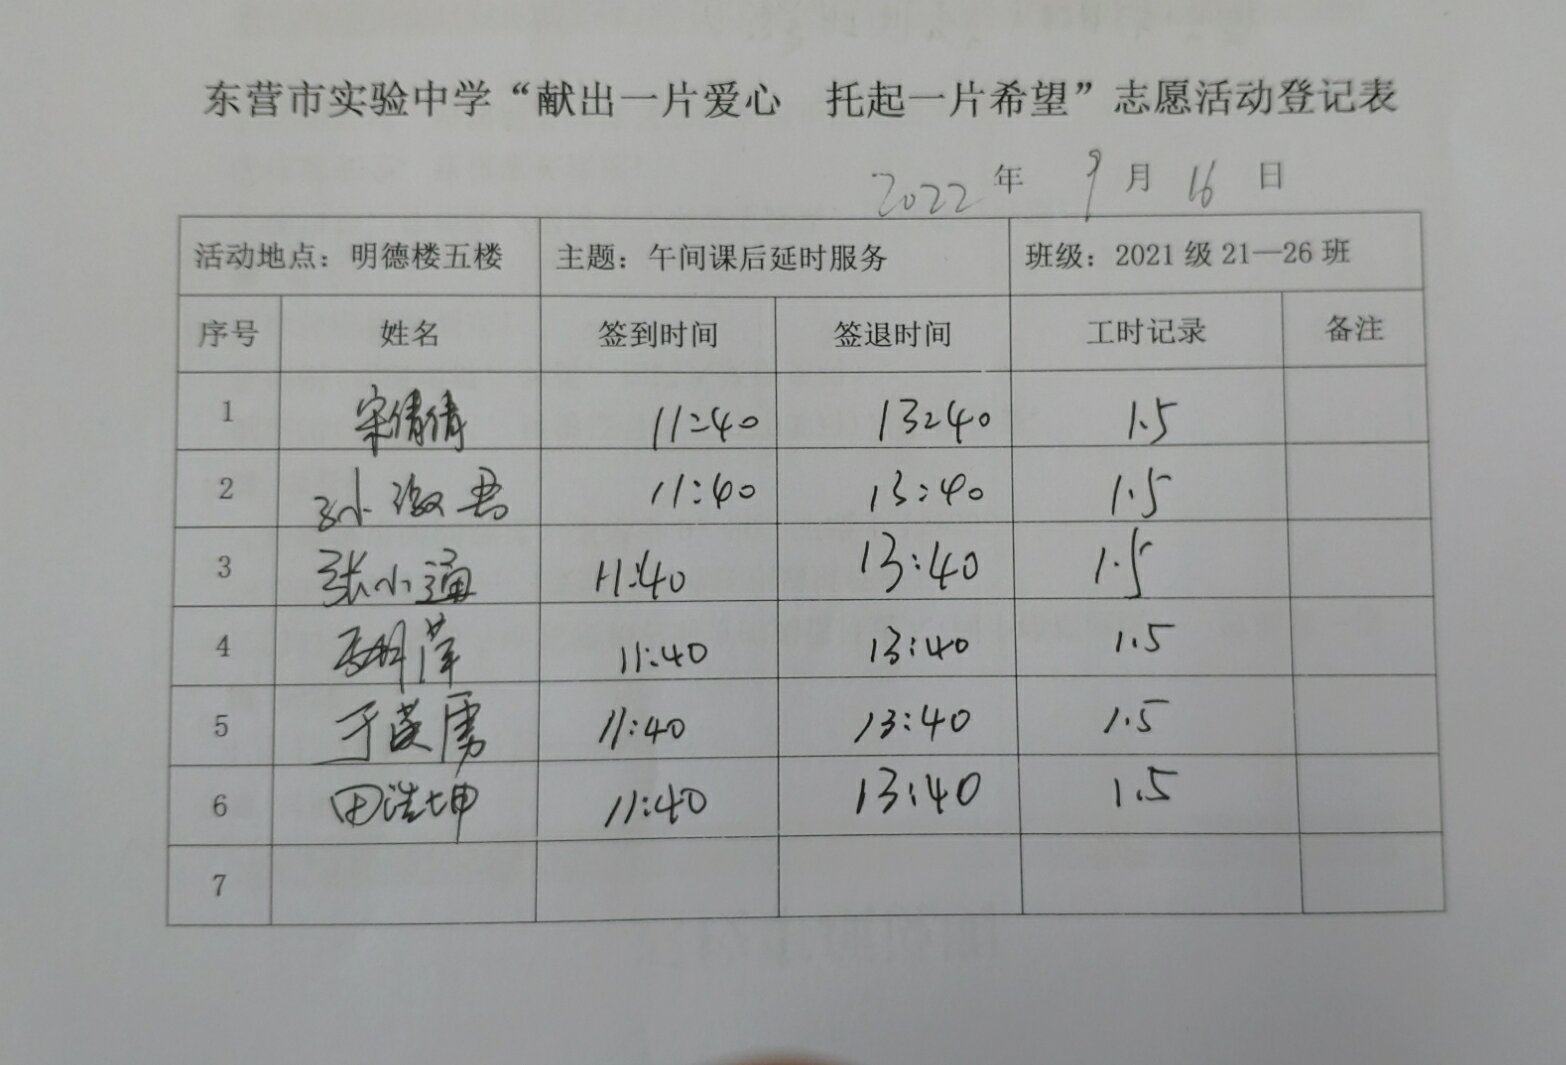 东营市实验中学“献出一片爱心 托起一片希望”志愿活动登记表
2022 年 9 月 16 日
活动地点：明德楼五楼 主题：午间课后延时服务 班级：2021级21—26班
序号 姓名 签到时间 签退时间 工时记录 备注
1 宋倩倩 11:40 13:40 1.5
2 孙 君 11:40 13:40 1.5
3 张小通 11:40 13:40 1.5
4 萍 11:40 13:40 1.5
5 于 11:40 13:40 1.5
6 田浩坤 11:40 13:40 1.5
7